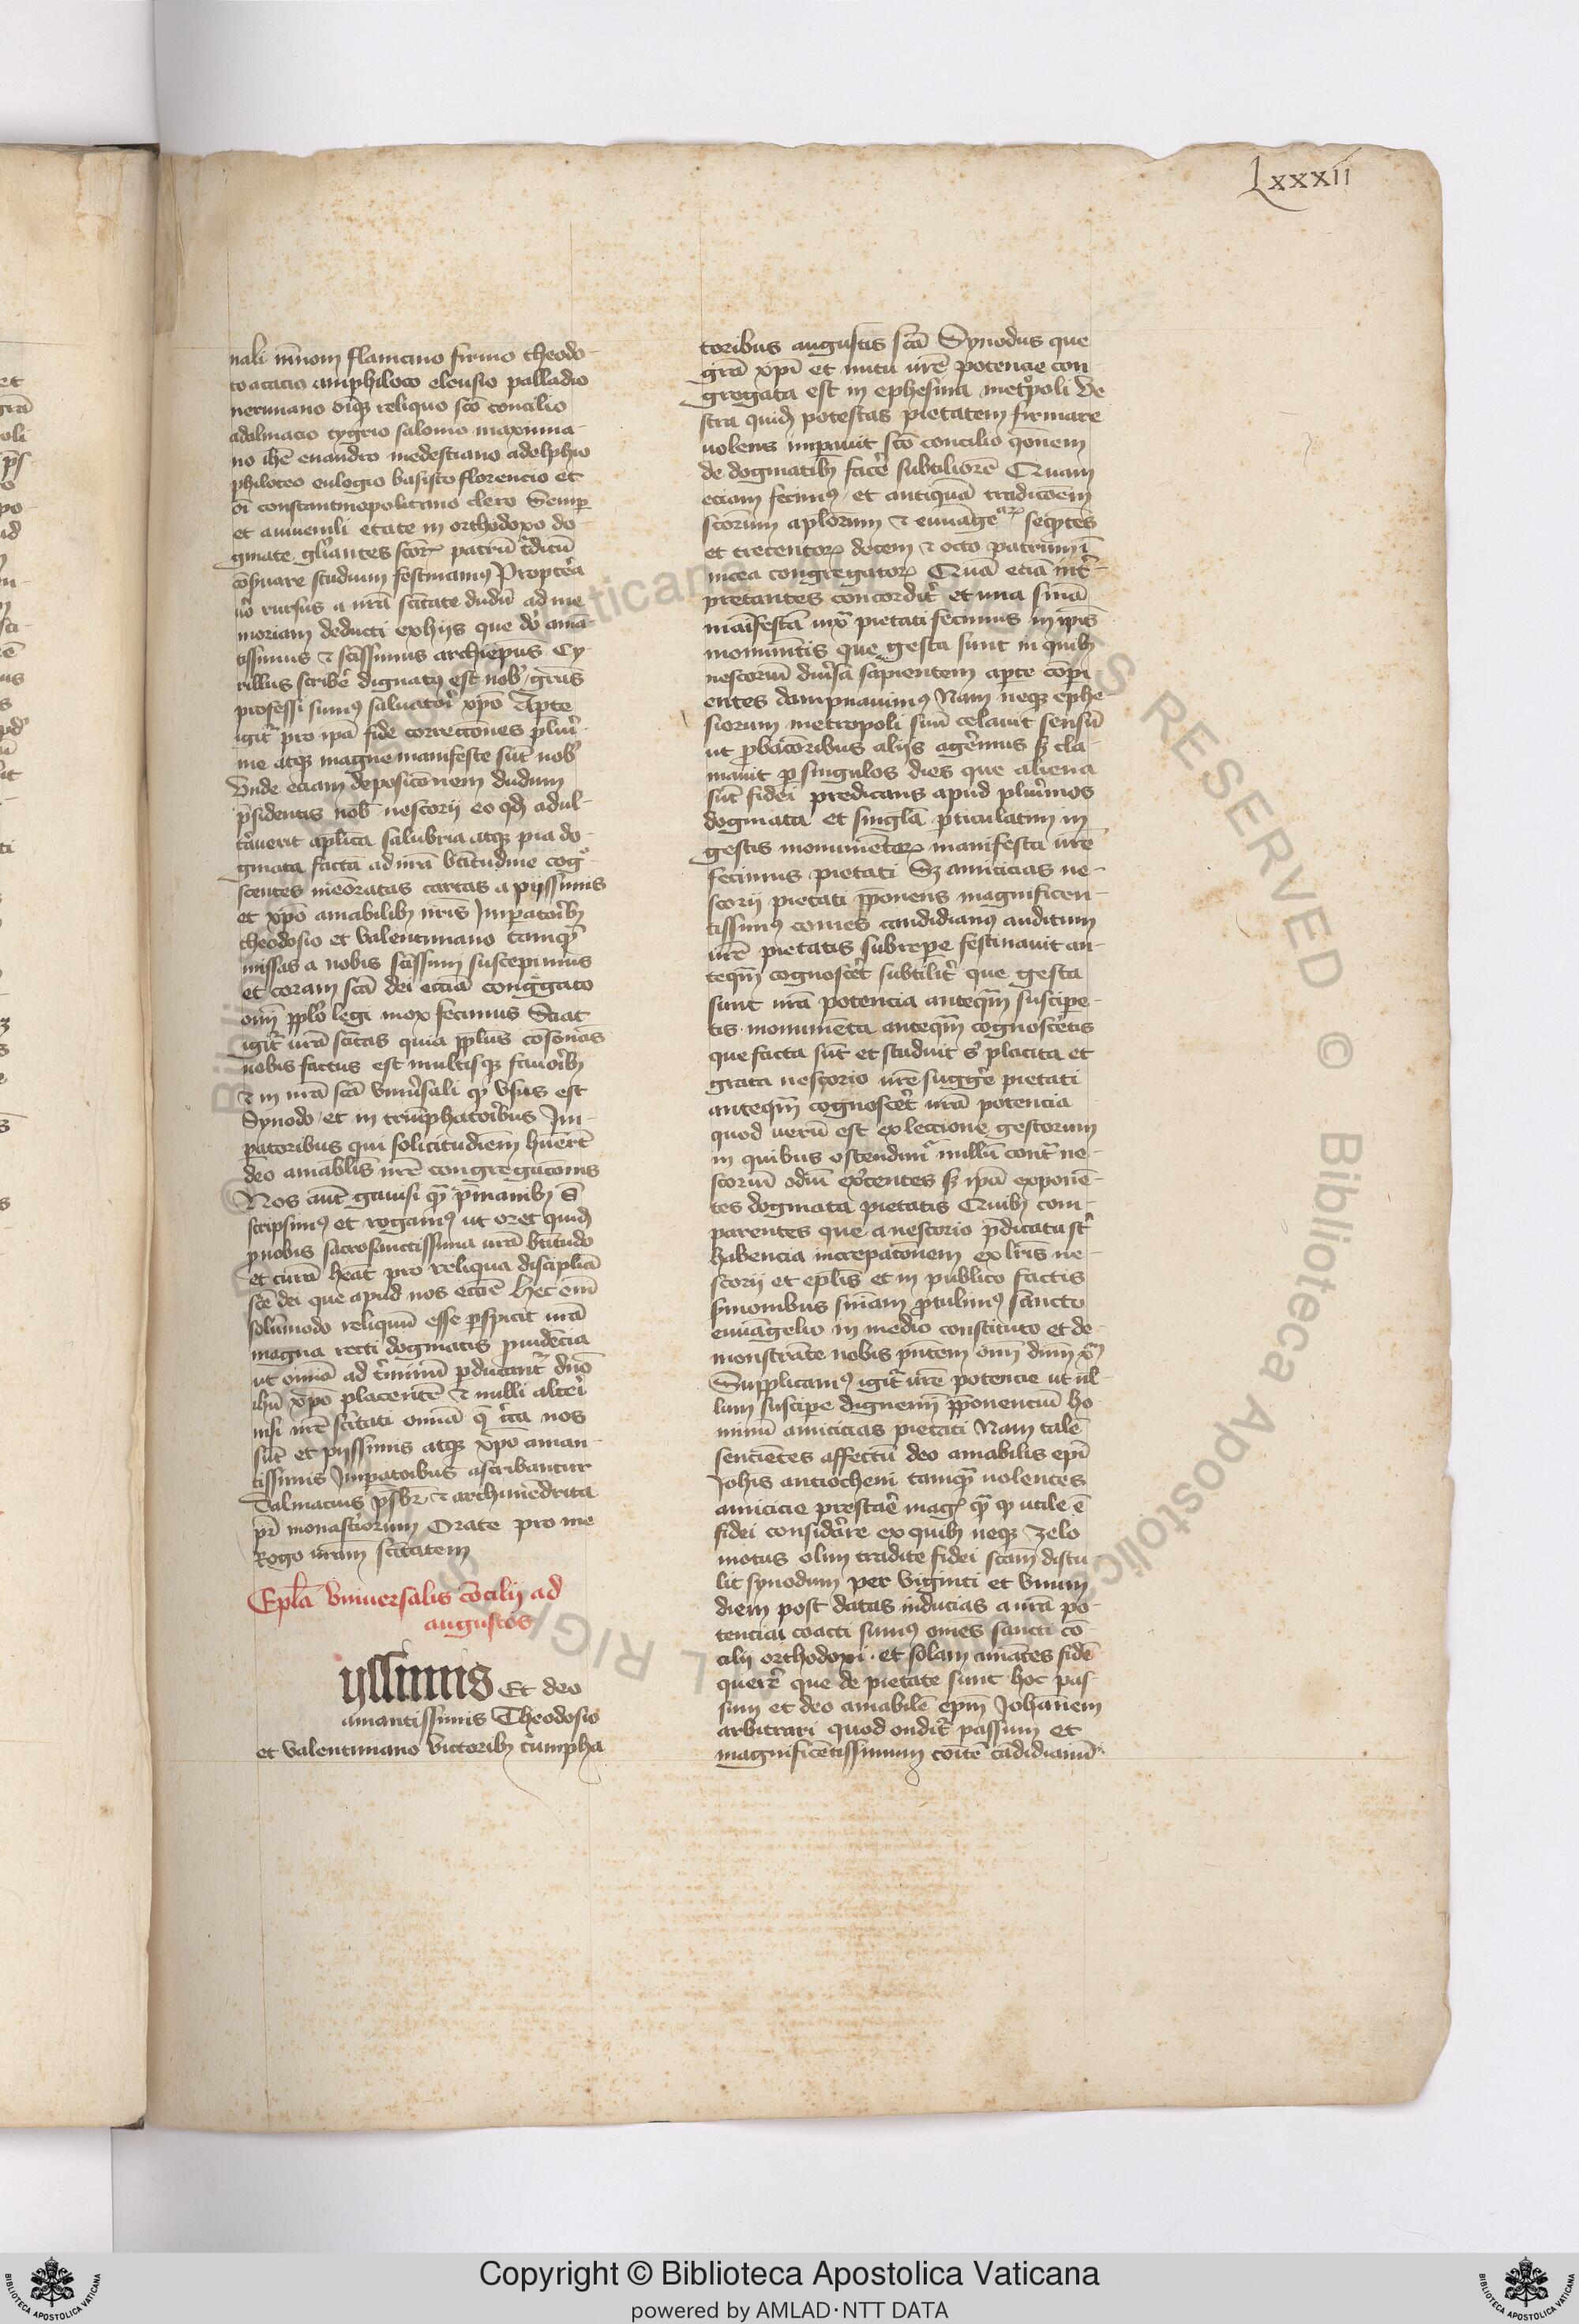 Lxxxii
nali mēnom flaviano firmo theodo-
to acacio amphiloco eleusio palladio
neruuano oīqꝫ reliquo scō concilio
adalmacio tygrio salomo maximia-
no ihē euandro medestiano adelphio
philoteo eulogio basisto florencio et
oī constantinopolitano clero Semꝑ
et a iuuenili etate in orthodoxo do-
gmate gl̄iantes scōꝝ patrū t̄ditū
cōẜuare studium festinamꝰ Propt̄ea
uō rursus a ur̄a sc̄itate dudū ad me
moriam deducti ex hijs que dō amā-
tissimus ⁊ sc̄issimus archiep̄us Cy-
rillus scribē dignatꝰ est nob̄ gr̄as
professi sumꝰ saluatori xp̄o Aꝑte
igit̄ pro ip̄a fide correctiones plur̄-
me atqꝫ magne manifeste sūt nob̄
Vnde eciam deposicōnem dudum
p̄sidentis nob̄ nestorij eo qd̄ adul-
t̄auerit ap̄lica salubria atqꝫ pia do-
gmata factā ad ur̄a bt̄itudine cogo-
scentes meōratas cartas a pijssimis
et xp̄o amabilibꝫ nr̄is Imꝑatoribꝫ
theodosio et valentiniano tamq̄
missas a nobis sc̄issimi suscepimus
et coram scā dei eccīa congḡato
om̄i pp̄lo legi mox fecimus Sciat
igit̄ ur̄a sc̄itas quia pp̄lus cōsonās
nobis factus est multisqꝫ fauoribꝫ
⁊ in ur̄a scā vniu̇sali qꝫ vsus est
Synodo et in triūphatoribus Im-
ꝑatoribus qui solicitudiem hūert̄
deo amablis ur̄e congregacōnis
Nos aut̄ gauisi qͣ p̄manibꝫ s̄
scripsimꝰ et rogamꝰ ut oret quid̄
ꝓ nobis sacrosanctissima ur̄a bt̄itudo
et curā heāt pro reliqua discipliā
scē dei que apud nos eccīe Hec eni̅
solūmodo reliquū esse ꝑspicit ur̄a
magna recti dogmatis prudēcia
ut omia ad t̄minū ꝑducant̄ dn̄o
ihū xp̄o placentē ⁊ nulli alteri
nisi ur̄e sc̄itati omia q̄ c̄ca nos
sūt et pijssimis atqꝫ xp̄o aman-
tissimis Imꝑatoibus ascribantur
Dalmacius p̄sbr̄ ⁊ archimedrita
pr̄ monast̄iorum Orate pro me
Rogo ur̄am sc̄itatem
Epl̄a vniuersalis cōcilij ad
augustos
ijssimis Et deo
amantissimis Theodosio
et valentiniano victoribꝫ t̄umpha
toribus augustis scā Synodus que
gr̄a xp̄i et nutu ur̄e potencie con
gregata est in ephesina met̊poli Ve
stra quid̄ potestas pietatem firmare
uolens imꝑauit scō concilio qōnem
de dogmatibꝫ facē subtiliorē Quam
eciam fecimꝰ et antiquā tradicōem
scōrum apl̄orum ⁊ euuāgeaꝝ seq̄ntes
et trecentoꝝ decem ⁊ octo patrum ī
nicea congregatoꝝ Quā eciā int̄-
pretantes concordit̄ et una sn̄īa
maīfestā mx̄ pietati fecimus in ip̄is
monumt̄is que gesta sunt in quibꝫ
nestoriū diu̇sa sapientem aꝑte cōꝑi
entes dampnauimꝰ Nam neqꝫ ephe
siorum metropoli suū celauit sensū
ut ꝓbacōribus alijs agēmus sꝫ cla-
mauit ꝑ singulos dies que aliena
sūt fidei predicans apud plur̄mos
dogmata et singl̄a ꝑticulatim in
gestis monumētoꝝ manifesta ur̄e
fecimus pietati Sꝫ amicicias ne-
storij pietati p̄ponens magnificen-
tissimꝰ comes candidianꝰ auditum
ur̄e pietatis subrepe festinauit an-
teqm̄ cognoscēt subtilit̄ que gesta
sunt ur̄a potencia anteqm̄ susciꝑe-
tis monumēta anteqm̄ cognoscētis
que facta sūt et studuit s̄ placita et
grata nestorio ur̄e suggēe pietati
anteqm̄ cognoscēt ur̄a potencia
quod uerū est ex leccione gestorum
in quibus ostendimͬ nullū cont̄ ne-
storiū odiū ex̄centes sꝫ ip̄a exponē-
tes dogmata pietatis Quibꝫ com-
parentes que a nestorio p̄dicata st̄
habencia increpacōnem ex lr̄is ne-
storij et epl̄is et in publico factis
ẜmonibus sn̄iam ꝓtulimꝰ sancto
euuāgelio in medio constituto et de-
monstrāte nobis pn̄tem om̄i dn̄m xm̄
Supplicamꝰ igit̄ ur̄e potencie ut ul-
lam susciꝑe dignemī p̄ponenciū ho
minū amicicias pietati Nam talē
sencientes affectū deo amabilis ep̄i
Joh̄is antiocheni tamqͣ uolentes
amicicie prestaē magꝭ qͣ qꝫ utile ē
fidei considēare ex quibꝫ neqꝫ zelo
motus olim tradite fidei scām distu-
lit synodum per viginti et vnum
diem post datas inducias a ur̄a po-
tencia coacti sumꝰ om̄es sancti cō-
cilij orthodoxi et solam amātes fidē
querē que de pietate sunt hoc pas-
sum et deo amabilē ep̄m Johan̄em
arbitrari quod ondit̄ passum et
magnificētissimum coītē cādidianū
Copyright © Biblioteca Apostolica Vaticana
powered by AMLAD·NTT DATA